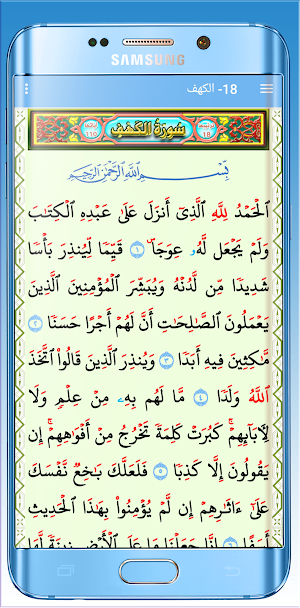 SAMSUNG
18- الكهف
سورة الكهف
بِسْمِ ٱللَّهِ ٱلرَّحْمَٰنِ ٱلرَّحِيمِ
ٱلْحَمْدُ لِلَّهِ ٱلَّذِىٓ أَنزَلَ عَلَىٰ عَبْدِهِ ٱلْكِتَٰبَ
وَلَمْ يَجْعَل لَّهُۥ عِوَجَا ۜ ١ قَيِّمًا لِّيُنذِرَ بَأْسًا
شَدِيدًا مِّن لَّدُنْهُ وَيُبَشِّرَ ٱلْمُؤْمِنِينَ ٱلَّذِينَ
يَعْمَلُونَ ٱلصَّٰلِحَٰتِ أَنَّ لَهُمْ أَجْرًا حَسَنًا ٢
مَّٰكِثِينَ فِيهِ أَبَدًا ٣ وَيُنذِرَ ٱلَّذِينَ قَالُوا۟ ٱتَّخَذَ
ٱللَّهُ وَلَدًا ٤ مَّا لَهُم بِهِۦ مِنْ عِلْمٍ وَلَا
لِـَٔابَآئِهِمْ ۚ كَبُرَتْ كَلِمَةً تَخْرُجُ مِنْ أَفْوَٰهِهِمْ ۚ إِن
يَقُولُونَ إِلَّا كَذِبًا ٥ فَلَعَلَّكَ بَٰخِعٌ نَّفْسَكَ
عَلَىٰٓ ءَاثَٰرِهِمْ إِن لَّمْ يُؤْمِنُوا۟ بِهَٰذَا ٱلْحَدِيثِ
أَسَفًا ٦ إِنَّا جَعَلْنَا مَا عَلَى ٱلْأَرْضِ زِينَةً لَّهَا